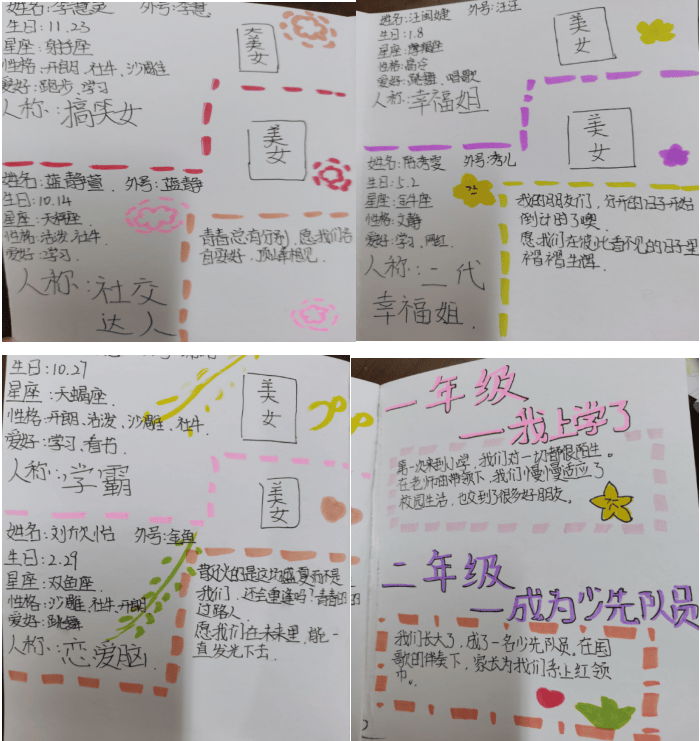 姓名:李慧灵 外号:李慧
生日:11.23
星座:射手座
性格:开朗、社牛、沙雕
爱好:跑步、学习
人称:搞笑女
美女
美女
姓名:蓝静萱 外号:蓝静
生日:10.14
星座:天秤座
性格:活发、社牛
爱好:学习
人称:社交
达人
青春总有分别,愿我们各
自变好,顶峰相见
外号:汪汪
生日:1.8
星座:摩羯座
性格:高冷
爱好:跳舞、唱歌
人称:幸福姐
美女
美女
外号:秀儿
生日:5.2
星座:金牛座
性格:文静
爱好:学习、网红
人称:二代
幸福姐
我的朋友们,分开的日子开始
倒计时了噢
愿我们在彼此看不见的日子里
褶褶生辉
生日:10.27
星座:天蝎座
性格:开朗、活发、沙雕、社牛
爱好:学习、看书
人称:学霸
美女
美女
姓名:刘欣怡 外号:金鱼
生日:2.29
星座:双鱼座
性格:沙雕、社牛、开朗
爱好:跳舞
人称:恋爱脑
散伙的是这场盛夏而不是
我们,还会重逢吗?青春的
过路人
愿我们在未来里,能一
直发光下去.
一年级
—我上学了
第一次来到小学,我们对一切都很陌生。
在老师的带领下,我们慢慢适应了
校园生活,也交到了很多好朋友。
二年级
—成为少先队员
我们长大了,成了一名少先队员,在国
歌的伴奏下,家长为我们系上红领
巾。